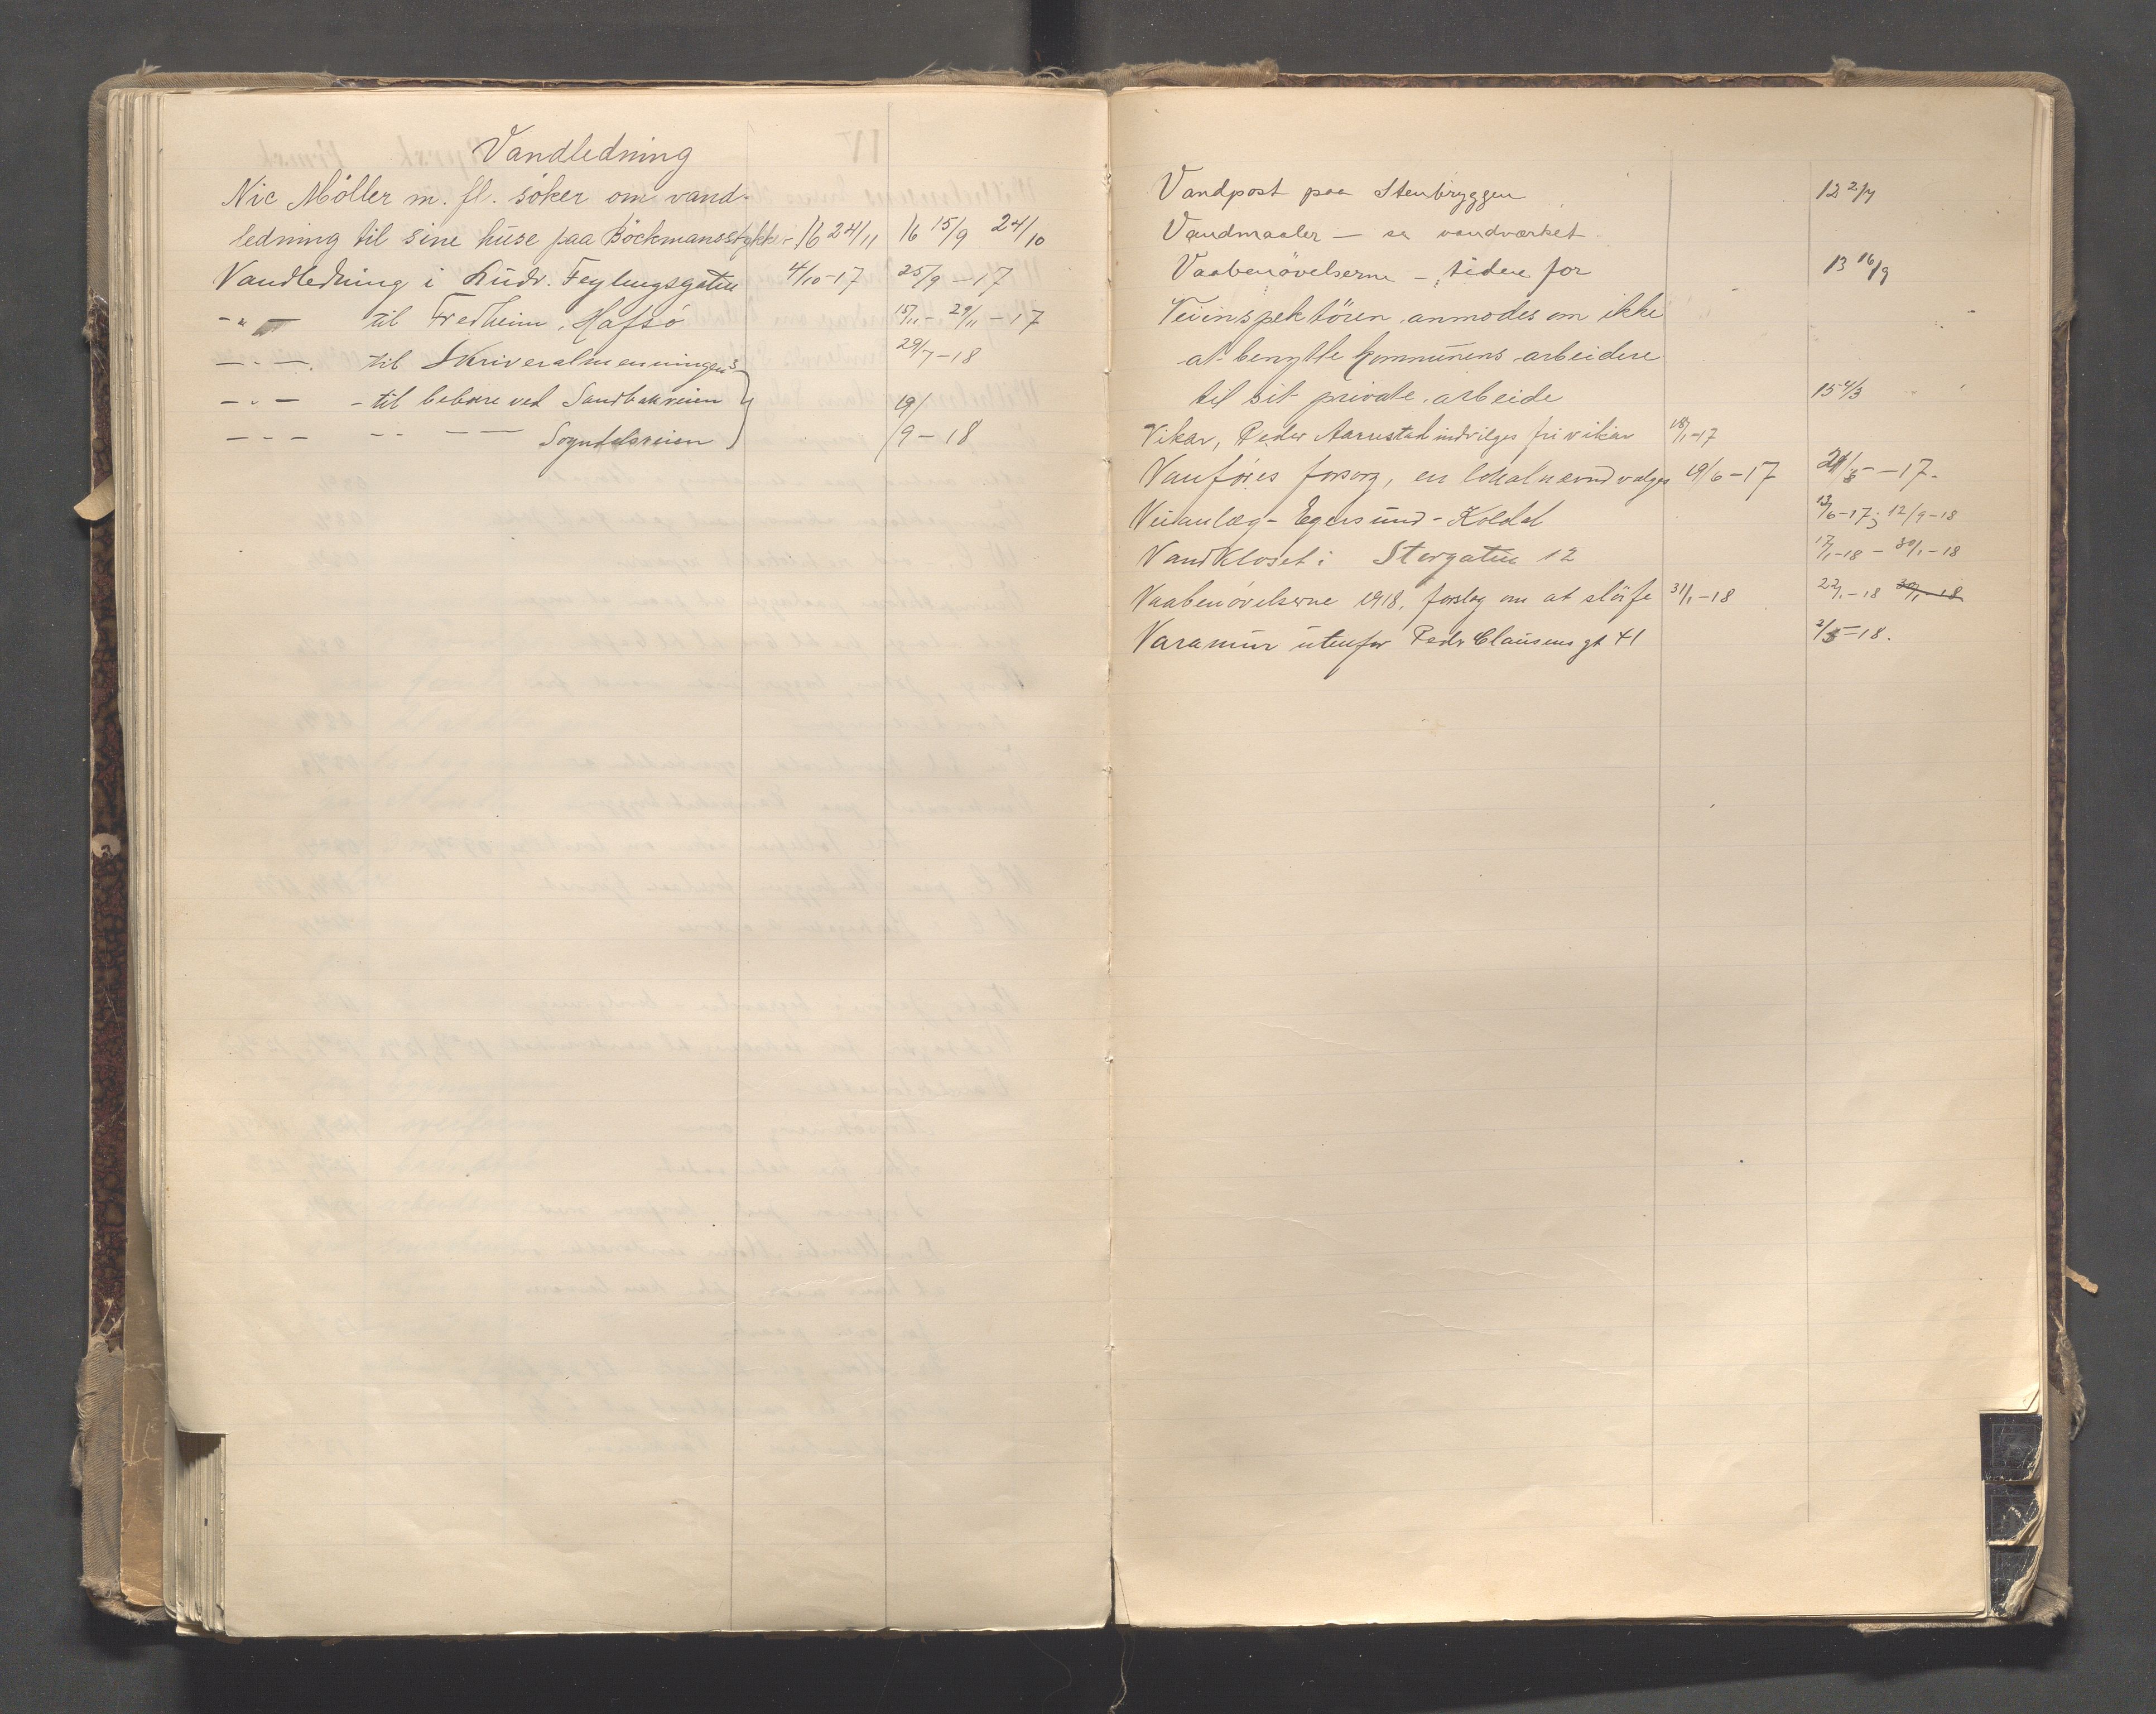 Vandledning
Nic Möller m. fl. söker om vand-
ledning til sine huse paa Böckmansstykker 16 24/11 16 15/9 24/10
Vandledning i Ludv. Feylingsgaten 4/10-17 25/9-17
-"- til Fredheim, Hafsö 15/11- 29/11-17
-"- til Skriveralmenningen 29/7-18
-"- - til beboere ved Sandbakveien
-"- -"- Sogndalsveien 19/9-18
Vandpost paa Stenbryggen 12 2/7
Vandmaaler - se vandværket
Vaabenövelserne - tiden for 13 16/9
Veiinspektören anmodes om ikke
at benytte kommunens arbeidere
til sit private arbeide 15 4/3
Vikar, Peder Aarrestad indvilges fri vikar 18/1-17
Vanföres forsorg, en lokalnevnd vælges 19/6-17 -17.
Veianlæg - Egersund - Koldal 13/6-17; 12/9-18
Vandkloset i Storgaten 12 17/1-18 - 30/1-18
Vaabenövelserne 1918, forslag om at slöife 31/1-18 22/1-18 30/1-18
Varamur utenfor Peder Clausens gt 41 2/5-18.